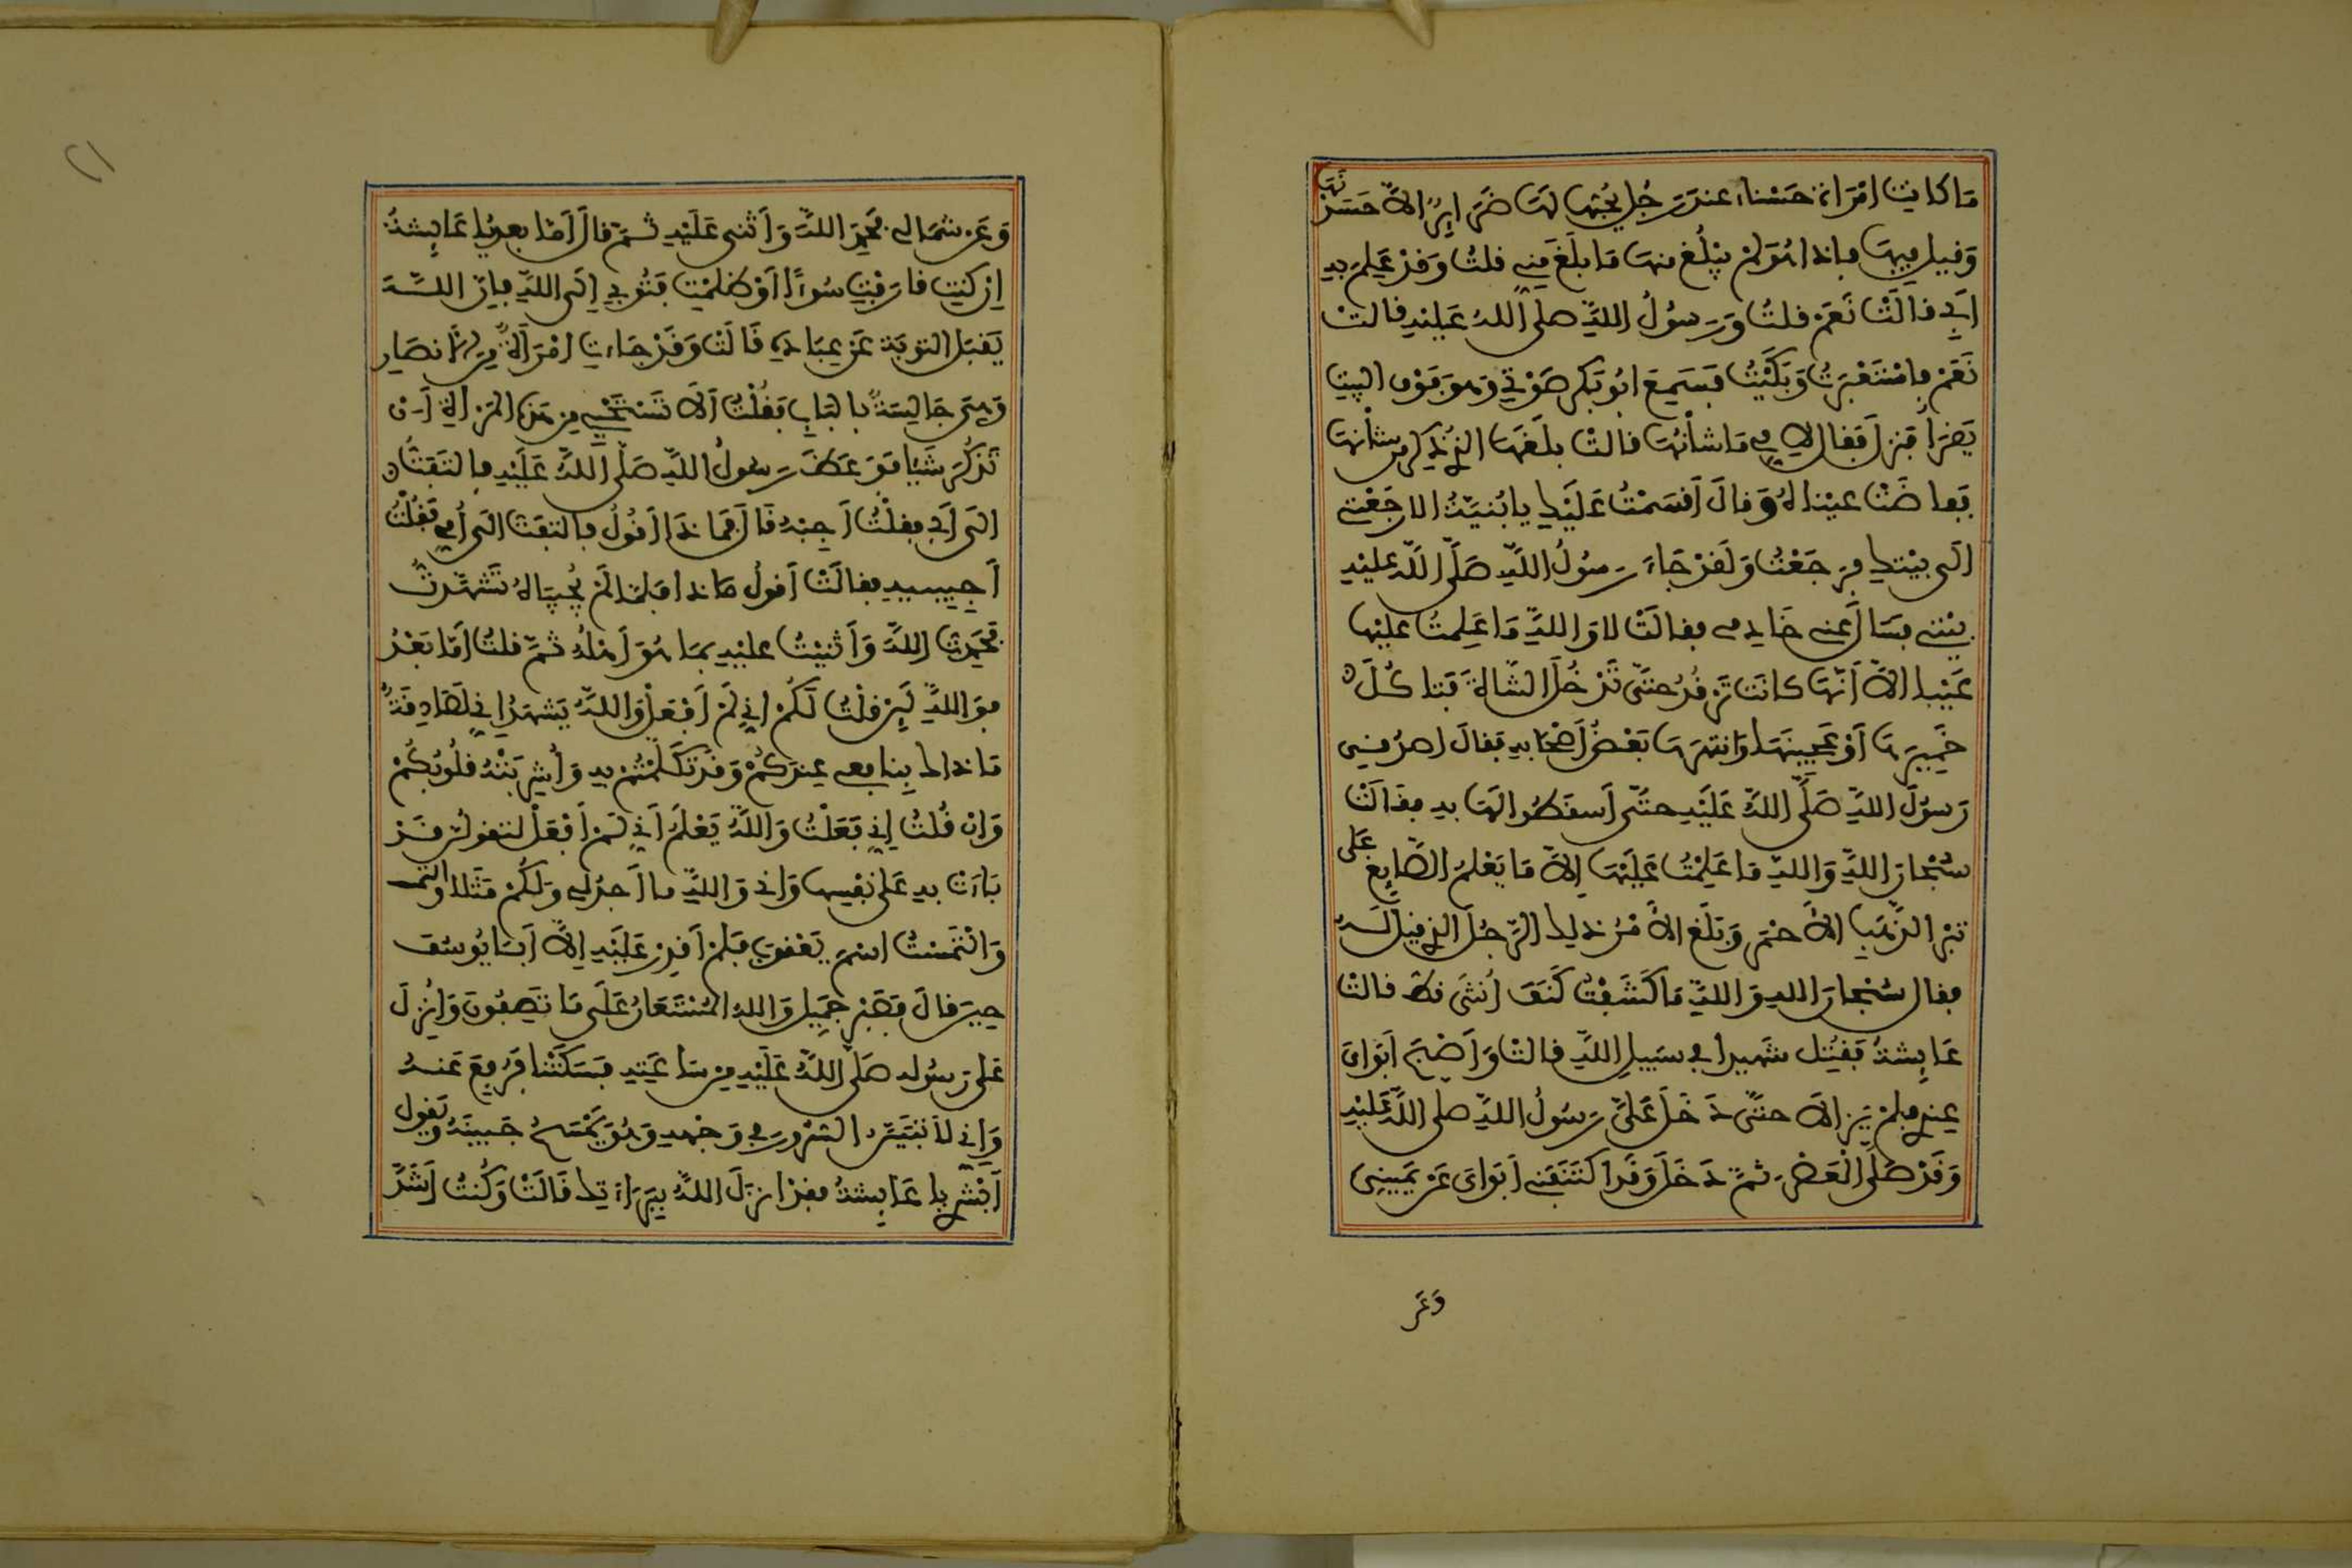 ما كانت امْرَاة حَسْناء عند رَجُل يُحِبُّهَا لهَا ضَرَائِرُ الاَّ حَسَدْنَهَا
وَقيل فيهَا فاذا هُوَ لمْ يبْلُغ منهَا مَا بلَغَ مِنِّي قلتُ وَقَدْ عَلِمَ به
أبي قالَتْ نَعَمْ قلتُ وَرَسُولُ اللهِ صلى اللهُ عَليْهِ قالتْ
نَعَمْ فاسْتَعْبَرتُ وَبَكَيْتُ فسَمِعَ ابُو بَكر صَوْتي وهوَ فَوْق البيت
يَقرَأ فنزل فقال لأمي مَا شَأنُهَا قالتْ بلَغَهَا الذي ذُكِرَ من شأنهَا
ففَاضَتْ عيْناهُ وَقالَ أقسَمْتُ عَلَيْك يا بُنيَّةُ الا رَجَعْتِ
الَى بيْتك فرَجَعْتُ وَلَقَدْ جَاءَ رسُولُ اللهِ صَلَّى اللهُ عليْهِ
بيْتي فسَألَ عني خَادِمي فقالَتْ لا وَاللهِ مَا عَلِمتُ عَليْها
عَيْبا الاَّ أنَّهَا كانَت تَرْقُدُ حتَّى تَدْخُلَ الشَّاةُ فَتاكُلَ
خَمِيرَهَا أوْ عَجِينَهَا وَانتَهَرَهَا بَعْضُ أصْحَابه فقالَ اصدُقي
رَسُولَ اللهِ صَلَّى اللهُ عَلَيْهِ حتَّى أسقطُوا لهَا به فقالَتْ
سُبْحَانَ اللهِ وَاللهِ مَا عَلِمْتُ عَليْهَا إلاَّ مَا يَعْلَمُ الصَّائِغ عَلى
تِبْر الذَّهَب الأحْمَر وَبَلَغ الأمْرُ ذلك الرَّجُلَ الذي قيل لَهُ
فقال سُبْحانَ الله وَاللهِ مَا كَشَفْتُ كَنَفَ أُنثَى قطُّ قالتْ
عَايِشةُ فَقُتِل شَهيدا في سَبيلِ اللهِ قالتْ وَأصْبَحَ أبَوَايَ
عِندي فلمْ يَزَالاَ حتَّى دَخَلَ عَليَّ رَسُولُ اللهِ صلى اللهُ عَليْهِ
وَقَدْ صَلَّى الْعَصْرَ ثمَّ دَخَلَ وَقَد اكتَنَفَني أبَوَايَ عَنْ يَمِيني
وَعَن
٢١
وَعَن شمَالي فحَمِدَ اللهَ وَأثنى عَلَيْهِ ثمَّ قالَ أمَّا بعد يا عَائِشةُ
إنْ كنتِ قارَفْتِ سُوءًا أوْ ظلمْتِ فَتُوبي إلَى اللهِ فإنَّ اللهَ
يَقبَل التوبَة عَنْ عِبَادِهِ قَالَتْ وَقَدْ جَاءَتِ امْرَأةٌ مِن الأنصَار
وَهيَ جَالِسَةٌ بالبَاب فَقُلْتُ ألاَ تَسْتَحْيي مِن هَذه المَرْأة أن
تَذكُرَ شَيْئا فوَعَظَ رسُولُ اللهِ صَلَّى اللهُ عَلَيْهِ فالتَفَتُّ
الَى أبي فقلتُ أجِبْهُ قَالَ فمَاذَا أقُولُ فالتَفَتُّ الَى أُمي فَقُلْتُ
أجِيبيه فقالَتْ أقولُ مَاذا فلمَّا لمْ يُجِيبَاهُ تَشَهَّدتُ
فحَمِدتُ اللهَ وَأثنيْتُ عليْهِ بمَا هُوَ أهْلُهُ ثمَّ قلتُ أمَّا بَعْدُ
فوَاللهِ لَئِنْ قلْتُ لَكُمْ إني لَمْ أفعَلْ وَاللهُ يَشهَدُ إني لَصَادِقَةٌ
مَا ذاك بِنافعي عِندَكُمْ وَقَدْ تَكَلَّمْتُمْ بِهِ وَأُشْرِبَتْهُ قلُوبُكُمْ
وَإن قُلتُ إني فَعَلْتُ وَاللهُ يَعْلَمُ أني لَمْ أفْعَلْ لتقولُن قَدْ
بَاءَتْ بِهِ عَلى نفْسِها وَإني وَاللهِ ما أجدُ لي وَلكُمْ مَثَلا والتمست
وَالْتَمَسْتُ اسْمَ يَعْقوبَ فلَمْ أقْدِرْ عَلَيْهِ إلاَّ أبَا يُوسُفَ
حِينَ قالَ فصَبْرٌ جَمِيل وَاللهُ المُسْتَعَانُ عَلَى مَا تَصِفُونَ وَأُنْزِلَ
عَلى رَسُوله صَلَّى اللهُ عَلَيْهِ مِن سَاعَتِهِ فسَكَتْنا فرُفِعَ عَنهُ
وَإني لأَتَبَيَّنُ السُّرُورَ في وَجْهه وَهُوَ يَمْسَحُ جَبِينَهُ وَيَقول
أبْشِري يا عَائِشةُ فقدْ انزَلَ اللهُ بَرَاءَتك قَالَتْ وَكُنتُ أشَدَّ